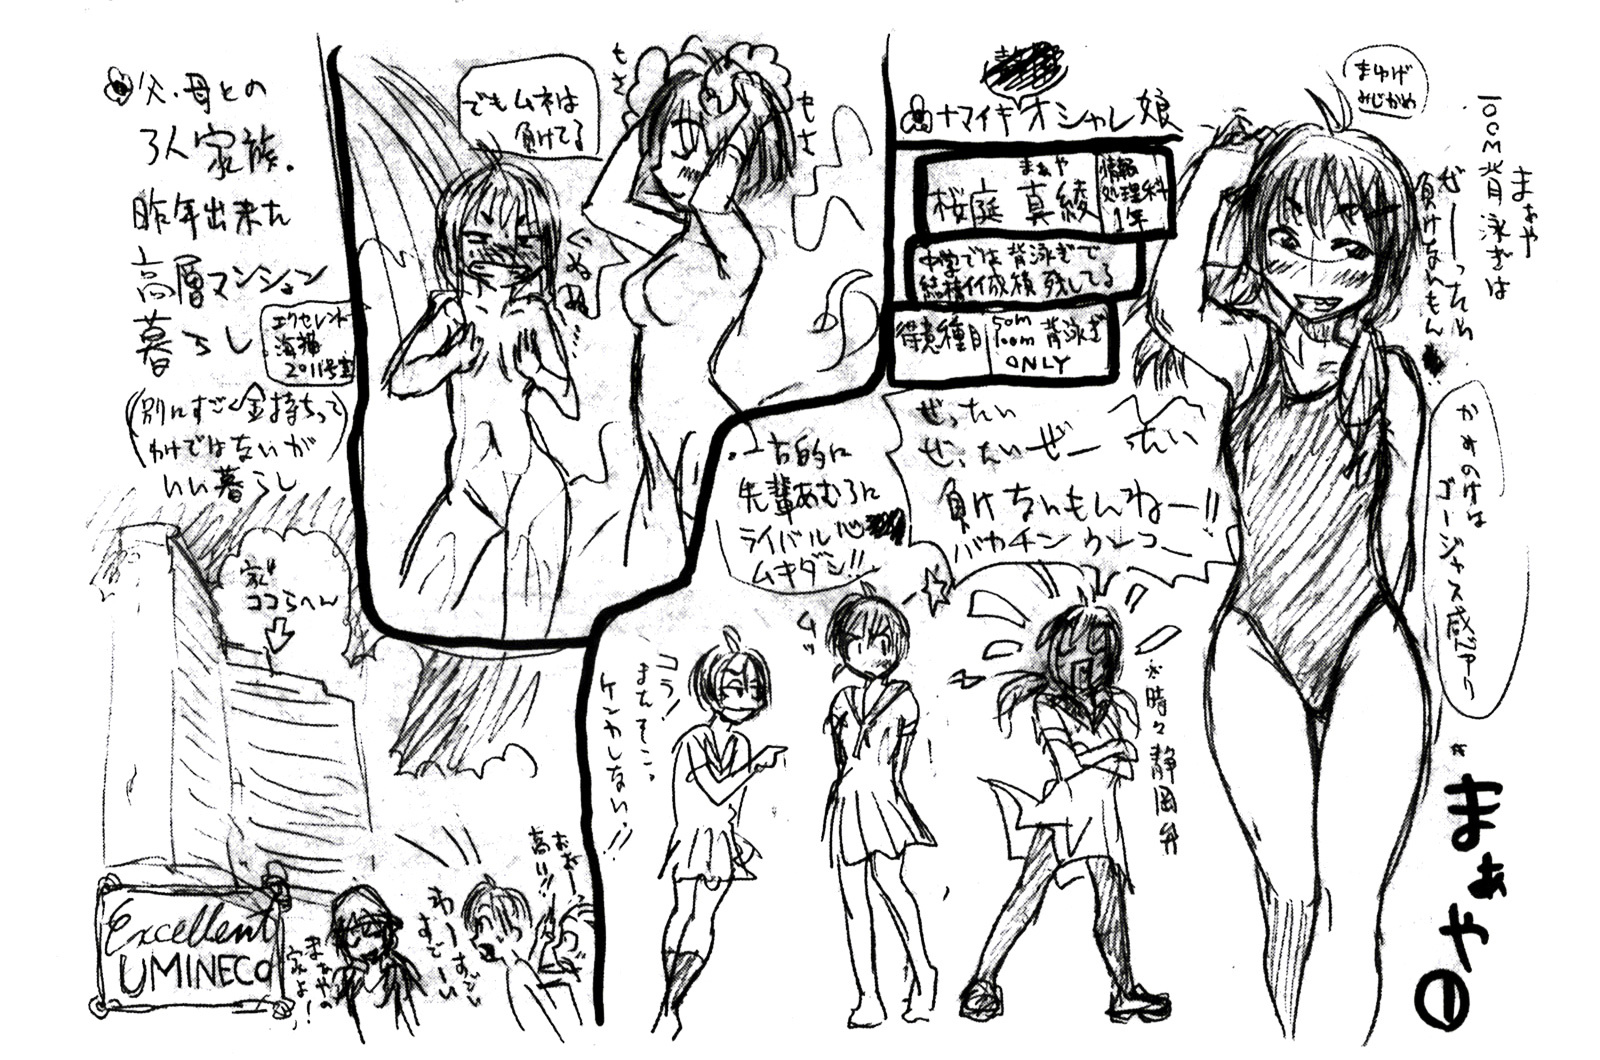 まゆげ
みじかめ
まぁや
100cM背泳ぎは
ぜーったい
負けないもん
かみのけは
ゴージャス感アリ
まぁや①
ナマイキオシャレ娘
まぁや
桜庭 真綾
情報
処理科
1年
中学では背泳ぎで
結構イイ成績残してる
得意種目
50m
100m 背泳ぎ
ONLY
ぜったい
ぜったいぜーったい
負けないもんねー!!
一方的に
先輩あむろに
ライバル心
ムキダシ!!
※時々静岡弁
ムッ
コラ!
またそこっ
ケンカしない!!
もさ
もさ
でもムネは
負けてる
ぐぬぬ…
父、母との
3人家族。
昨年出来た
高層マンション
暮らし
エクセレント
海猫
2011号室
(別にすごく金持ちって
わけではないが
いい暮らし)
家はココらへん
Excellent
UMINECO
まぁやの
家よ!
わーすごーい
すごーい
おおー
高い!!